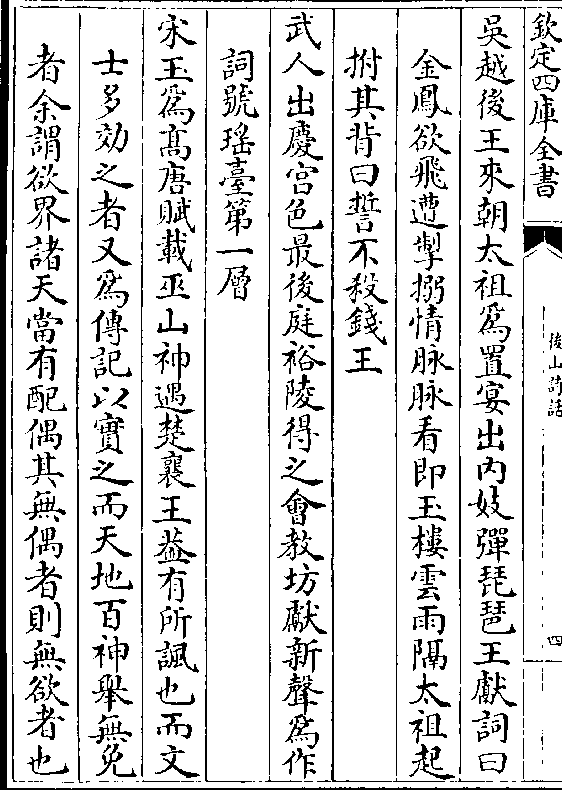 欽定四庫全書
後山詩話
四
吳越後王來朝太祖爲置宴出内妓彈琵琶王獻詞曰
金鳳欲飛遭掣搦情脉脉看即玉樓雲雨隔太祖起
拊其背曰誓不殺錢王
武人出慶宫色最後庭裕陵得之會教坊獻新聲爲作
詞號瑶臺第一層
宋玉爲髙唐賦載巫山神遇楚襄王葢有所諷也而文
士多効之者又爲傳記以實之而天地百神舉無免
者余謂欲界諸天當有配偶其無偶者則無欲者也